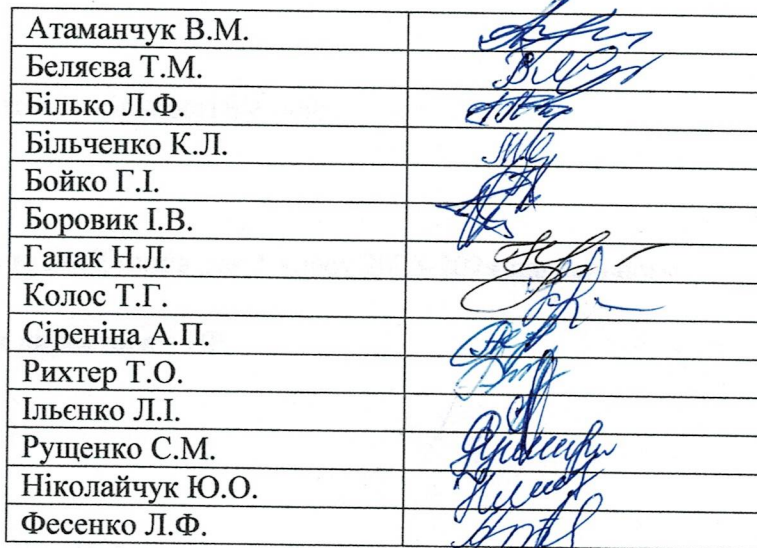 Атаманчук В.М.
Беляєва Т.М.
Білько Л.Ф.
Більченко К.Л.
Бойко Г.І.
Боровик І.В.
Гапак Н.Л.
Колос Т.Г.
Сіреніна А.П.
Рихтер Т.О.
Ільєнко Л.І.
Рущенко С.М.
Ніколайчук Ю.О.
Фесенко Л.Ф.